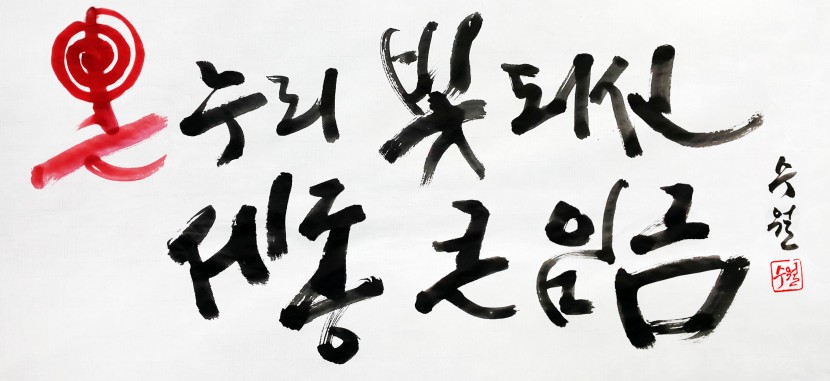 온누리 빛 되신
세종 큰 임금
수월
수월